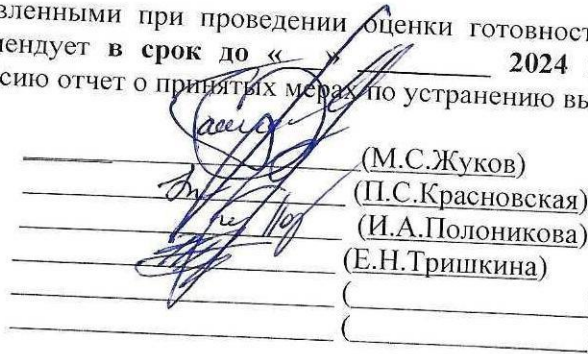 вленными при проведении оценки готовност
мендует в срок до « » 2024
сию отчет о принятых мерах по устранению вы
(М.С.Жуков)
(П.С.Красновская)
(И.А.Полоникова)
(Е.Н.Тришкина)
(
(